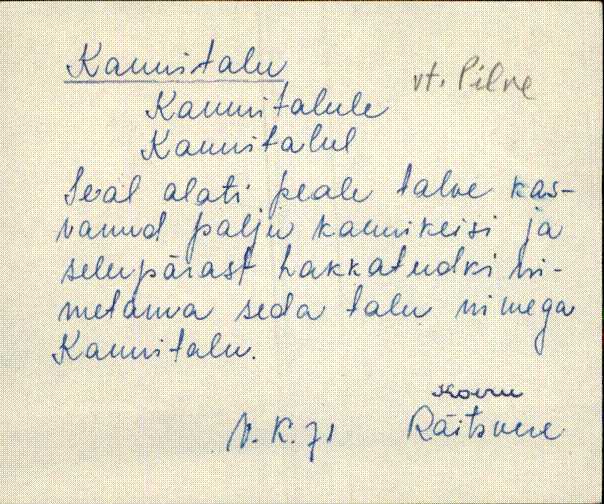 Kannitalu
vt. Pilve
Kannitalule
Kannitalul
Seal alati peale talve kas-
vanud palju kannikeisi ja
sellepärast hakkatudki ni-
metama seda talu nimega
Kannitalu.
Koeru
V. K. 71 Räitsvere